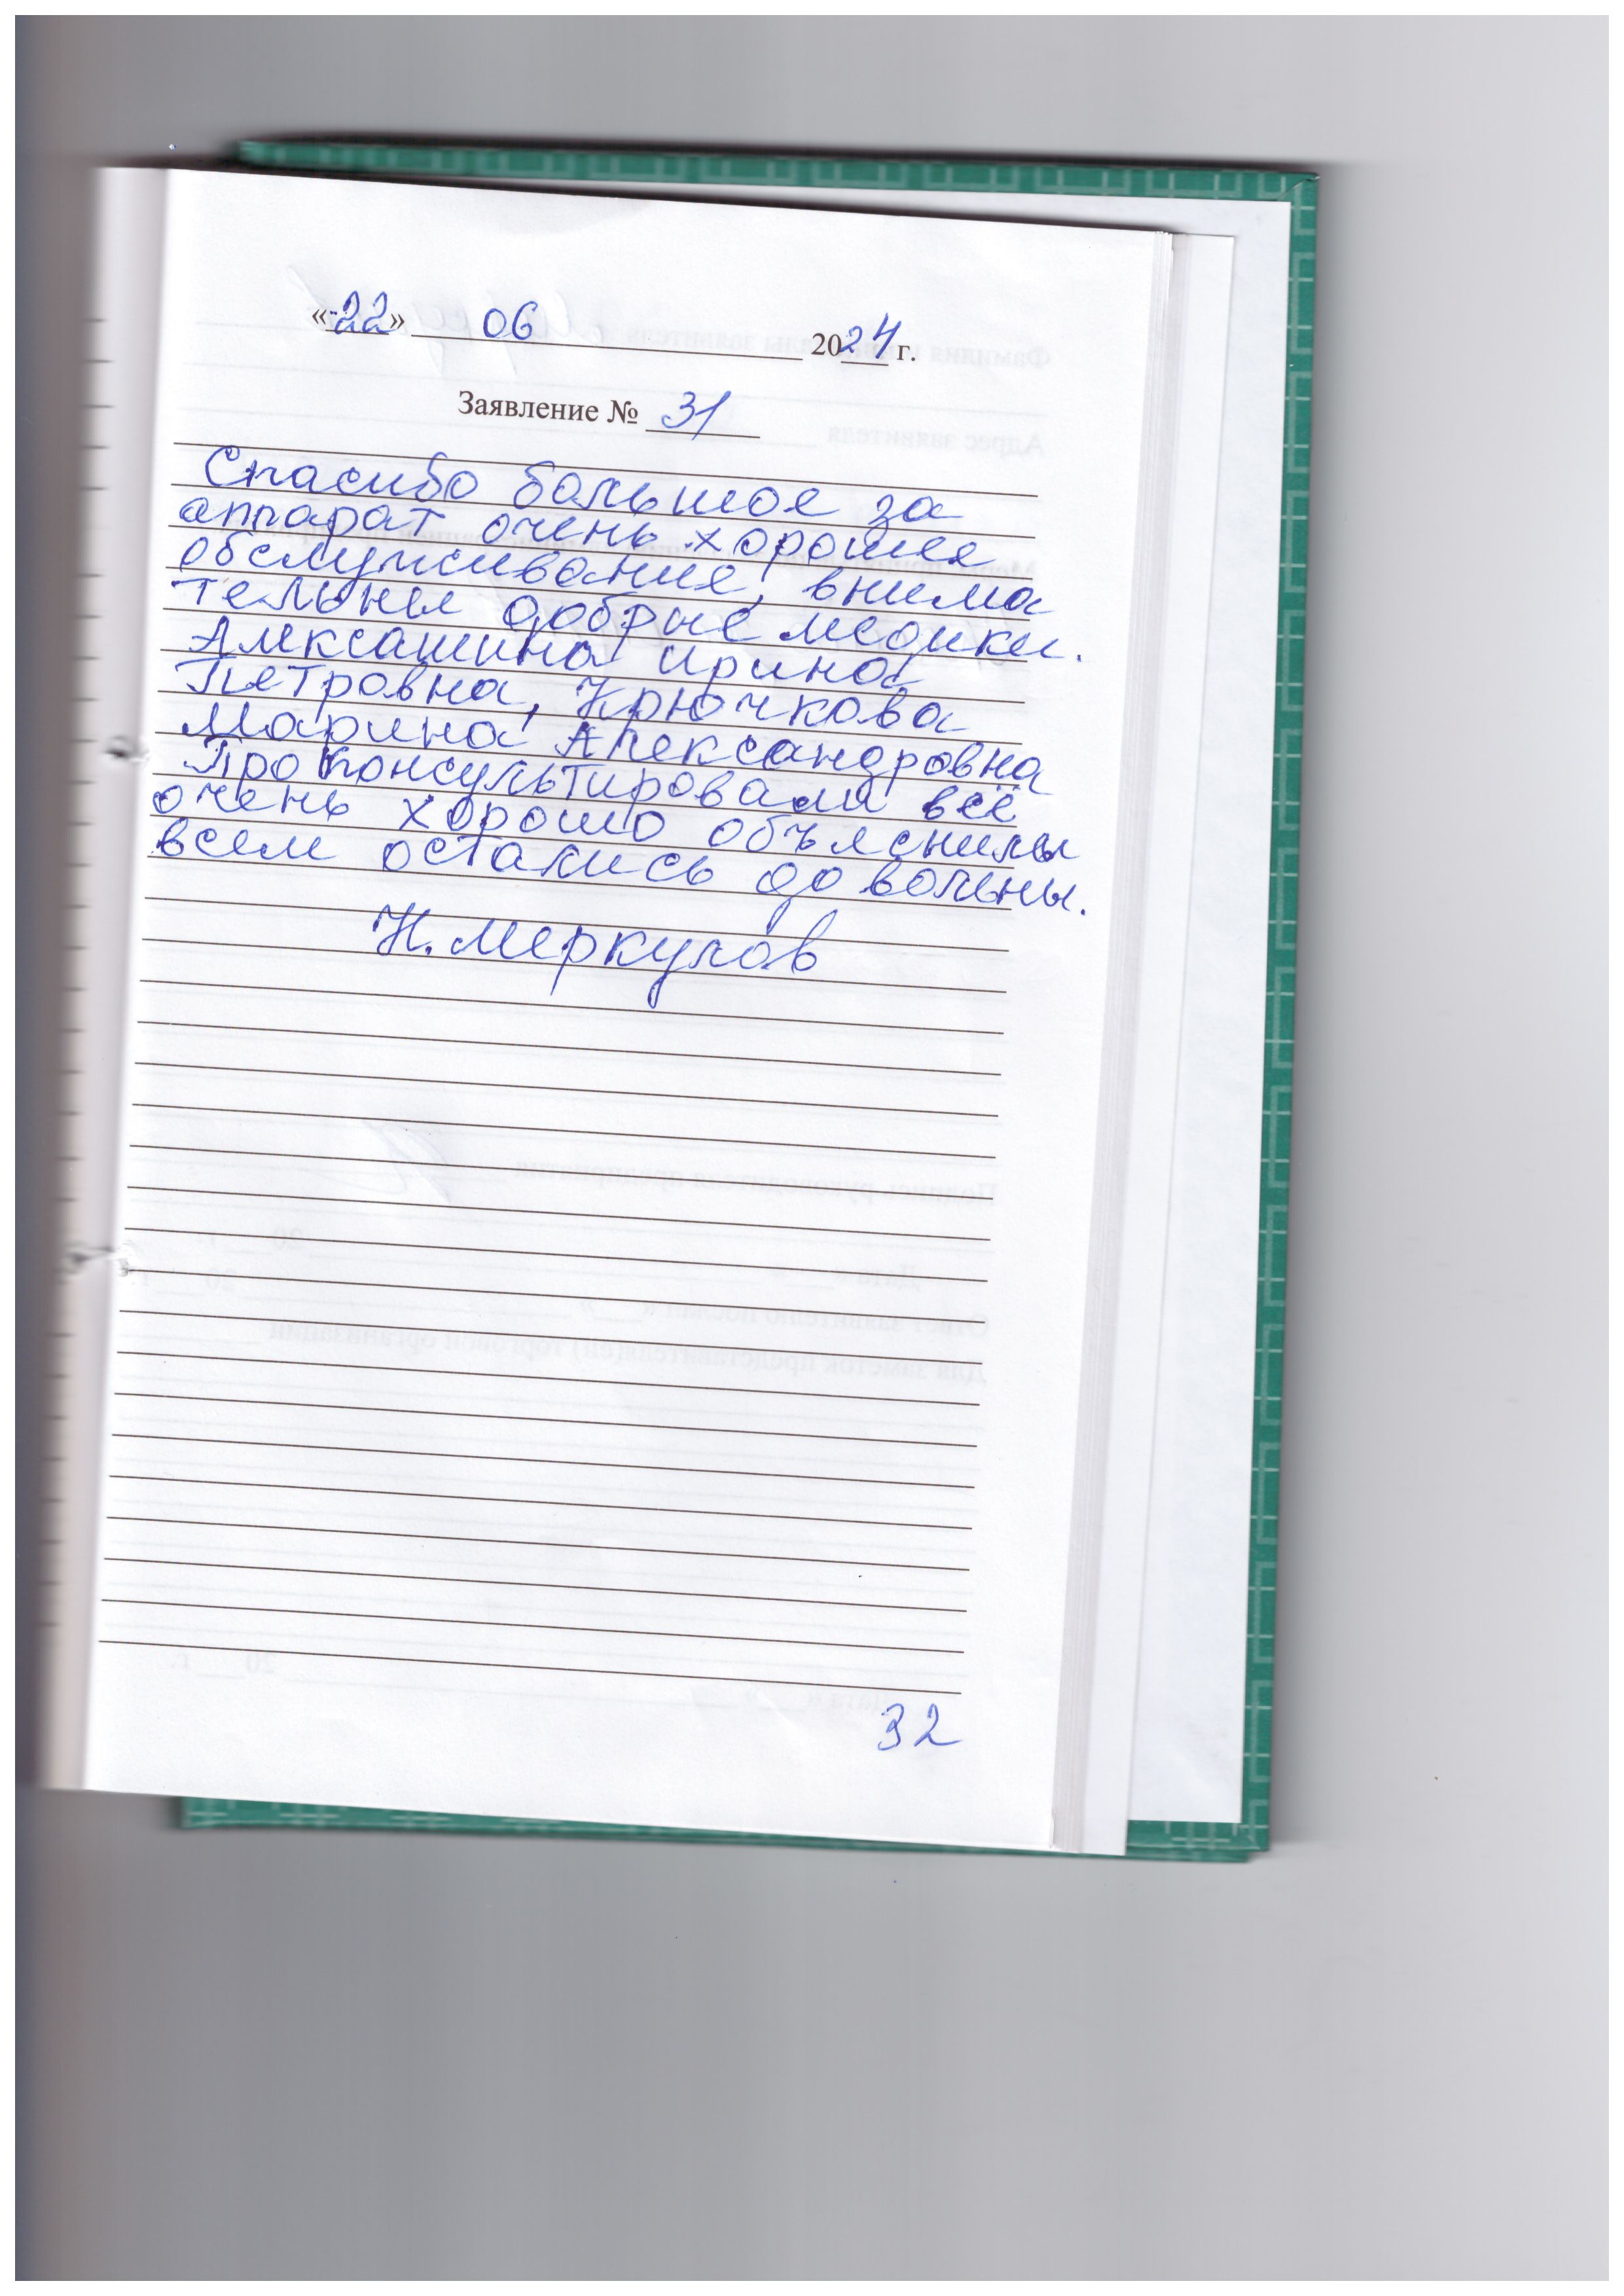 «22» 06 2024 г.
Заявление № 31
Спасибо большое за
аппарат очень хорошее
обслуживание, внима
тельные добрые медики.
Алексашина Ирина
Петровна, Крючкова
Марина Александровна
Проконсультировали всё
очень хорошо объяснилы
всем остались довольны.
Н. Меркулов
32